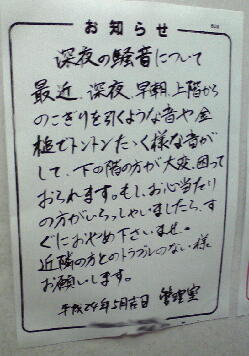 お知らせ
深夜の騒音について
最近、深夜、早朝、上階から
のこぎりを引くような音や金
槌でトントンたゝく様な音が
して、下の階の方が大変、困って
おられます。もし、お心当たり
の方がいらっしゃいましたら、す
ぐにおやめ下さいませ。
近隣の方とのトラブルのない様
お願いします。
平成24年5月吉日 管理室